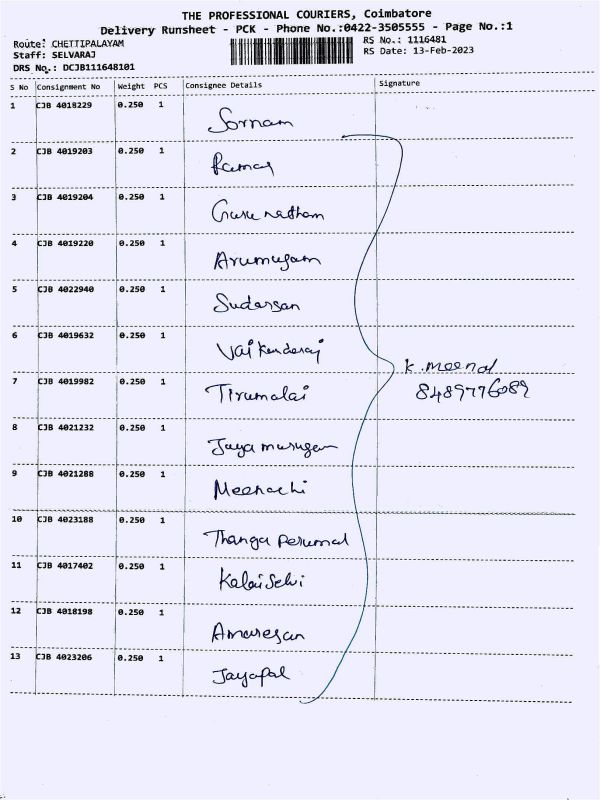 THE PROFESSIONAL COURIERS, Coimbatore
Delivery Runsheet - PCK - Phone No.:0422-3505555 - Page No.:1
Route: CHETTIPALAYAM
Staff: SELVARAJ
DRS No.: DCJB111648101
RS No.: 1116481
RS Date: 13-Feb-2023
S No Consignment No Weight PCS Consignee Details Signature
1 CJB 4018229 0.250 1 Sornam
2 CJB 4019203 0.250 1
3 CJB 4019204 0.250 1 Guru natham
4 CJB 4019220 0.250 1 Arumugam
5 CJB 4022940 0.250 1 Sudarsan
6 CJB 4019632 0.250 1
K. Meenal
7 CJB 4019982 0.250 1 Tirumalai 8489776089
8 CJB 4021232 0.250 1 Jaya murugan
9 CJB 4021288 0.250 1 Meenachi
10 CJB 4023188 0.250 1 Thanga Perumal
11 CJB 4017402 0.250 1 Kalai Selvi
12 CJB 4018198 0.250 1 Amaresan
13 CJB 4023206 0.250 1 Jayapal